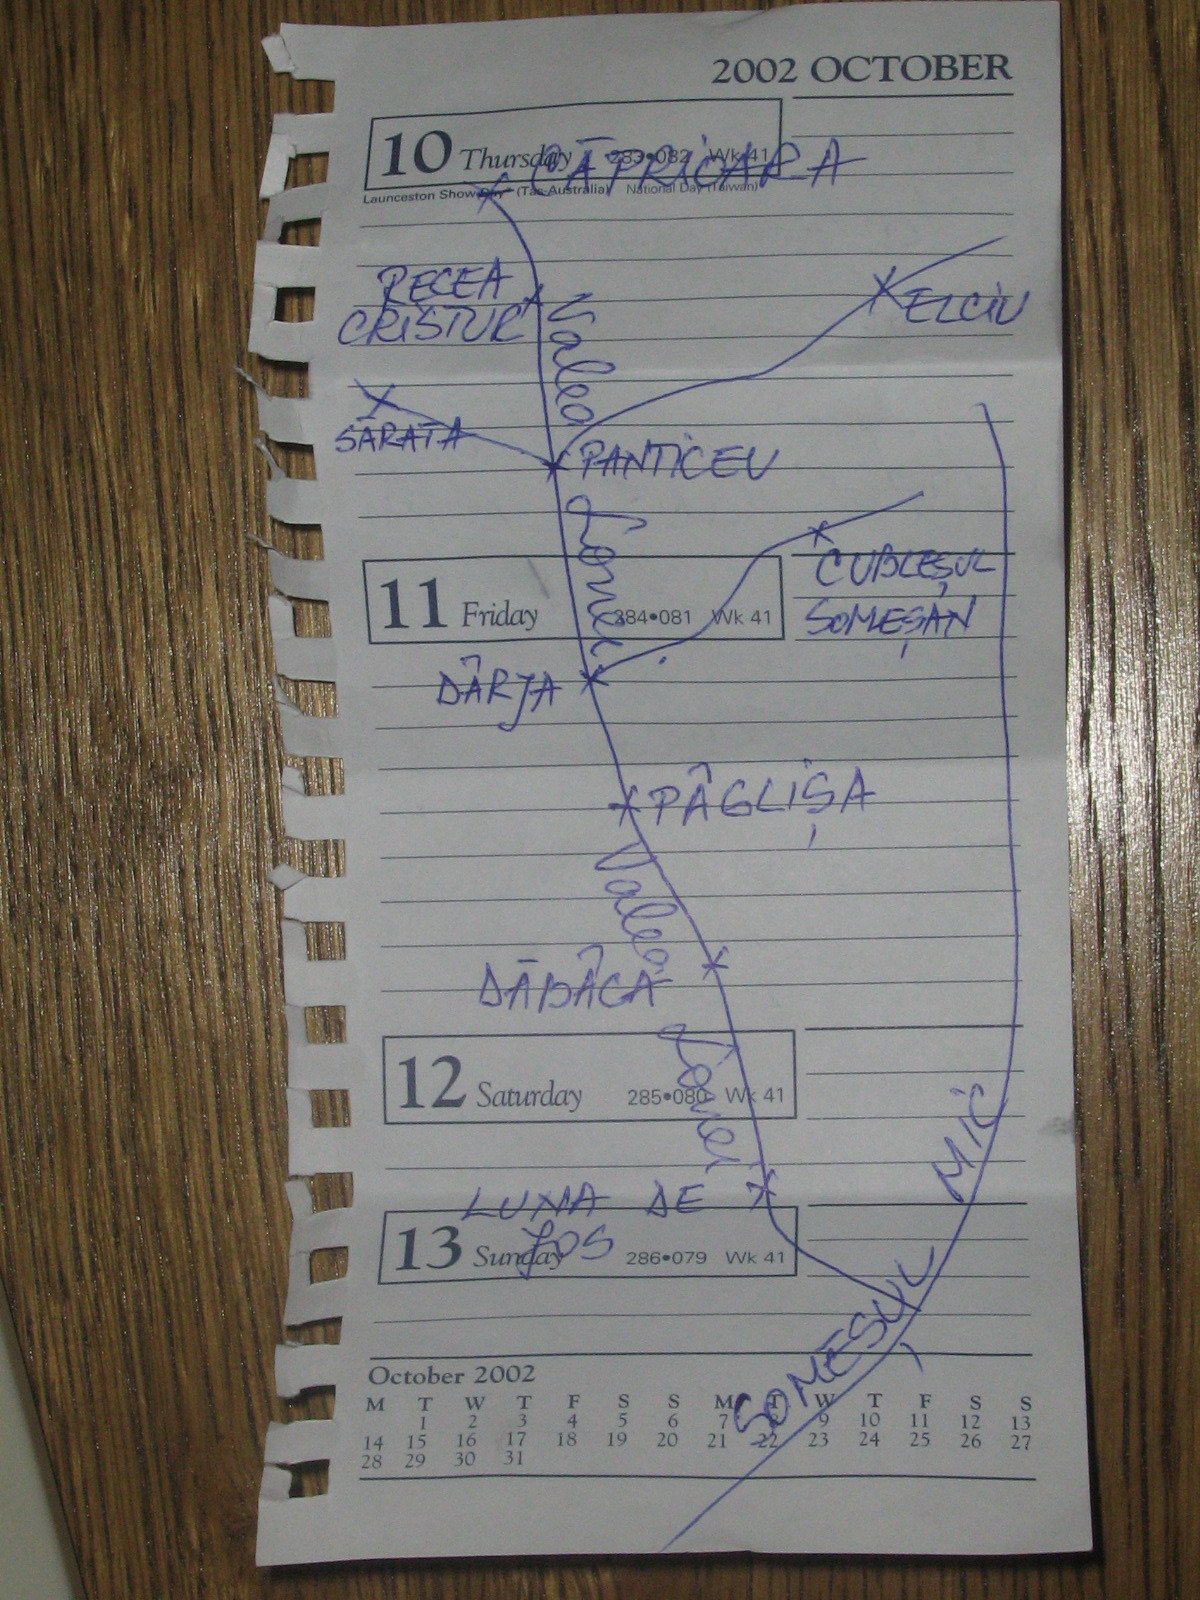 2002 OCTOBER
10 Thursday 283•082 Wk 41
CĂPRIOARA
Launceston Show Day* (Tas-Australia) National Day (Taiwan)
RECEA
CRISTUR
Valea
ELCIU
SĂRATA
PANTICEU
Lonei
CUBLEȘUL
SOMEȘAN
11 Friday 284•081 Wk 41
DÂRJA
PÂGLIȘA
Valea
DĂBÂCA
Lonei
12 Saturday 285•080 Wk 41
MIC
LUNA DE
JOS
13 Sunday 286•079 Wk 41
SOMEȘUL
October 2002
M T W T F S S M T W T F S S
1 2 3 4 5 6 7 8 9 10 11 12 13
14 15 16 17 18 19 20 21 22 23 24 25 26 27
28 29 30 31